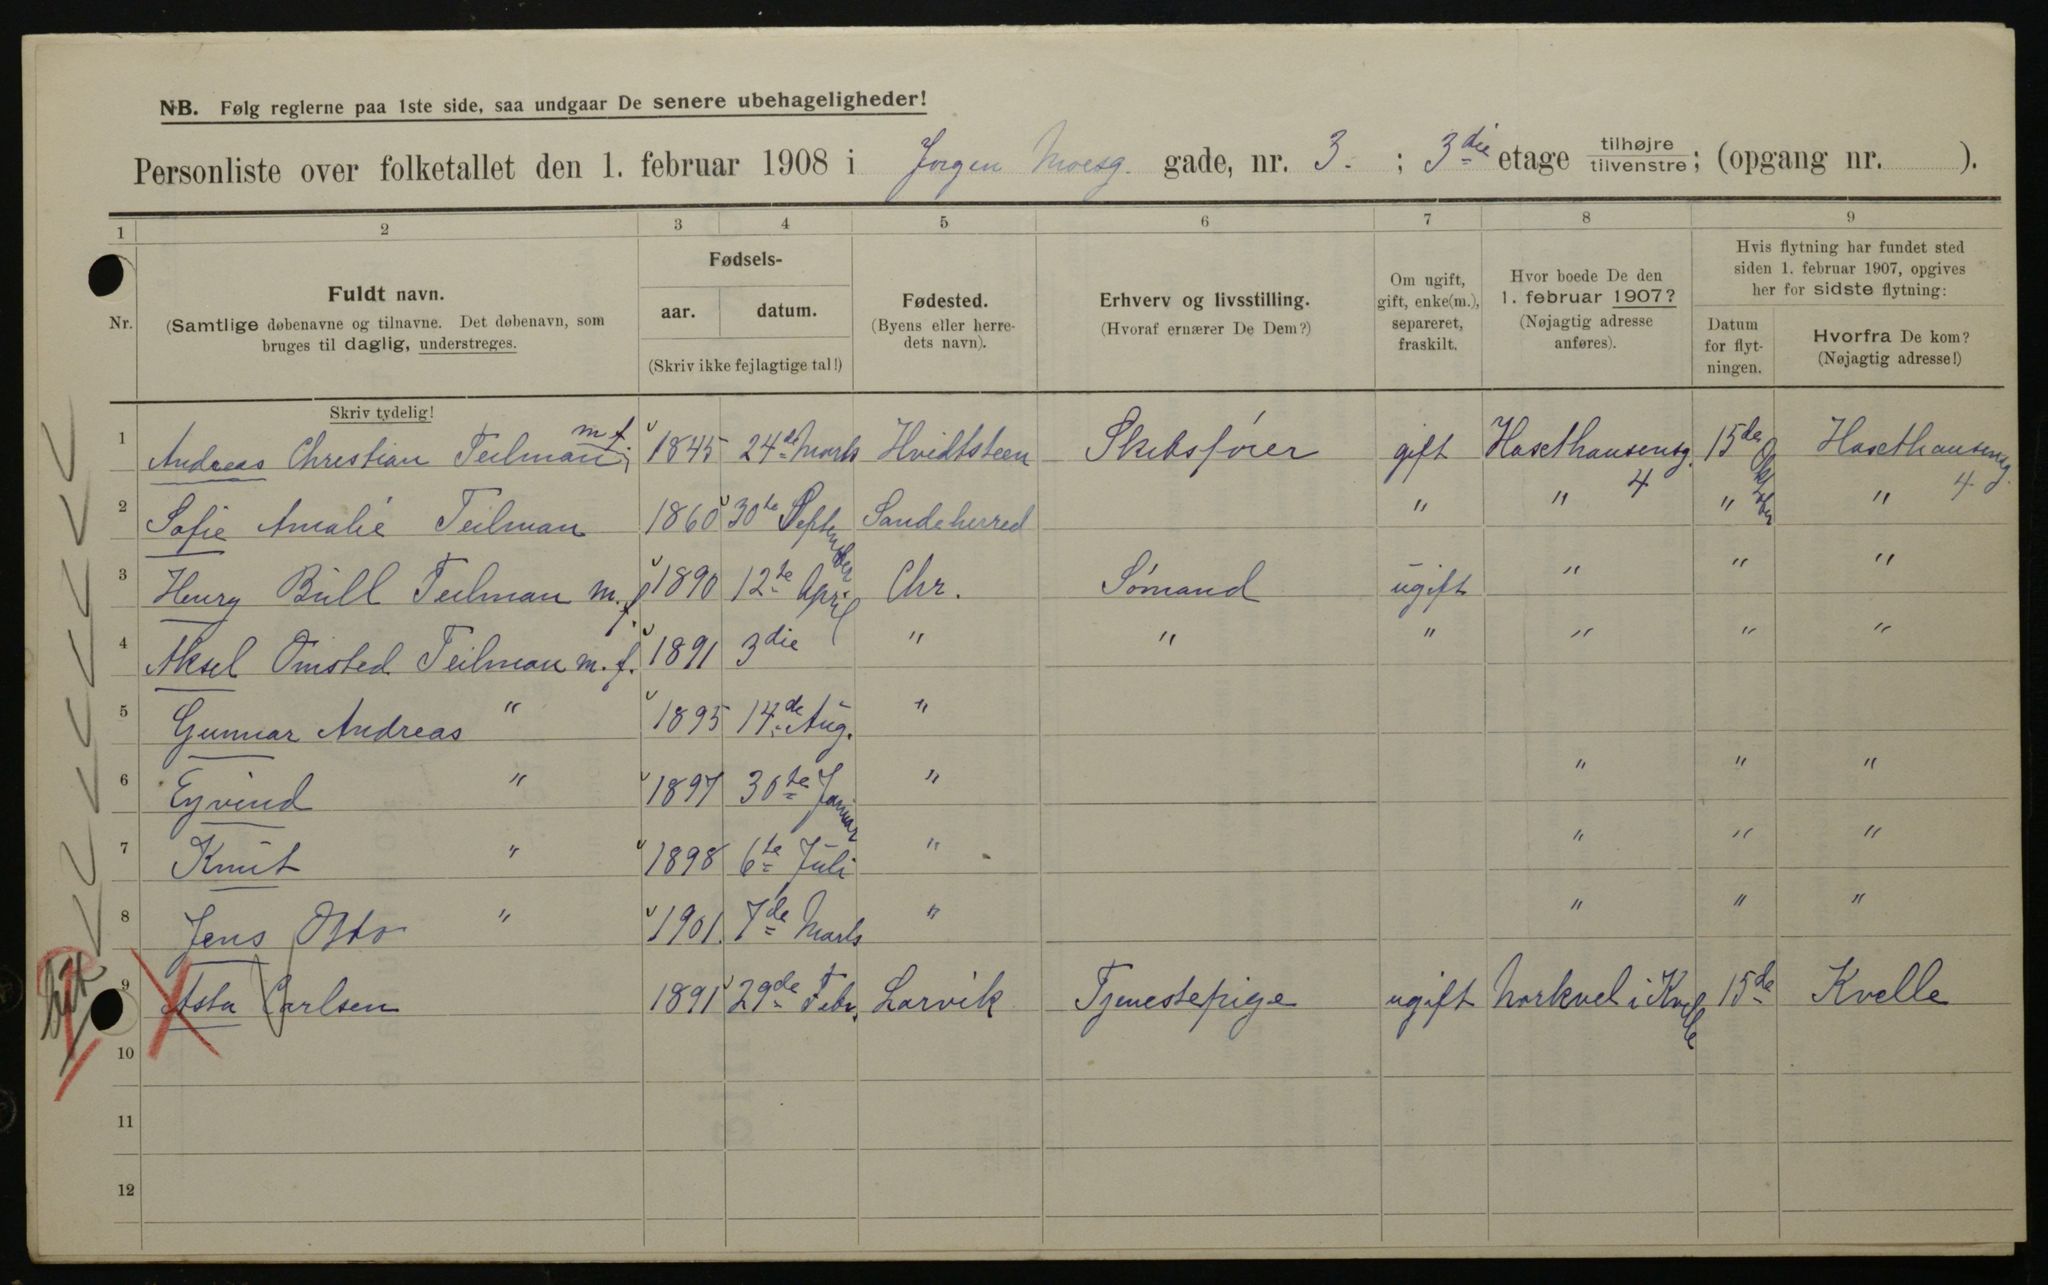 NB. Følg reglerne paa 1ste side, saa undgaar De senere ubehageligheder!
Personliste over folketallet den 1. februar 1908 i Jørgen Moesg. gade, nr. 3. ; 3die etage tilhøjre / tilvenstre; (opgang nr. ).
1 2 3 4 5 6 7 8 9
Nr.
Fuldt navn.
(Samtlige døbenavne og tilnavne. Det døbenavn, som
bruges til daglig, understreges.
Skriv tydelig!
Fødsels-
aar. datum.
(Skriv ikke fejlagtige tal!)
Fødested.
(Byens eller herre-
dets navn).
Erhverv og livsstilling.
(Hvoraf ernærer De Dem?)
Om ugift,
gift, enke(m.),
separeret,
fraskilt.
Hvor boede De den
1. februar 1907?
(Nøjagtig adresse
anføres).
Hvis flytning har fundet sted
siden 1. februar 1907, opgives
her for sidste flytning:
Datum
for flyt-
ningen.
Hvorfra De kom?
(Nøjagtig adresse!)
1 Andreas Christian Teilman m.f. 1845 24de Marts Hvidtsteen Skibsfører gift Haxthausensg. 4 15de Oktober Haxthausensg. 4
2 Sofie Amalie Teilman 1860 30te September Sandeherred " " " "
3 Henry Bull Teilman m.f. 1890 12te April Chr. Sømand ugift " " "
4 Aksel Omsted Teilman m.f. 1891 3die " " " " " "
5 Gunnar Andreas " 1895 14de Aug. "
6 Eyvind " 1897 30te Januar " " " "
7 Knut " 1898 6te Juli " " " "
8 Jens Otto " 1901. 7de Marts " " " "
9 Asta Carlsen 1891 29de Febr. Larvik Tjenestepige ugift Norkvel i Kvelle 15de Kvelle
10
11
12